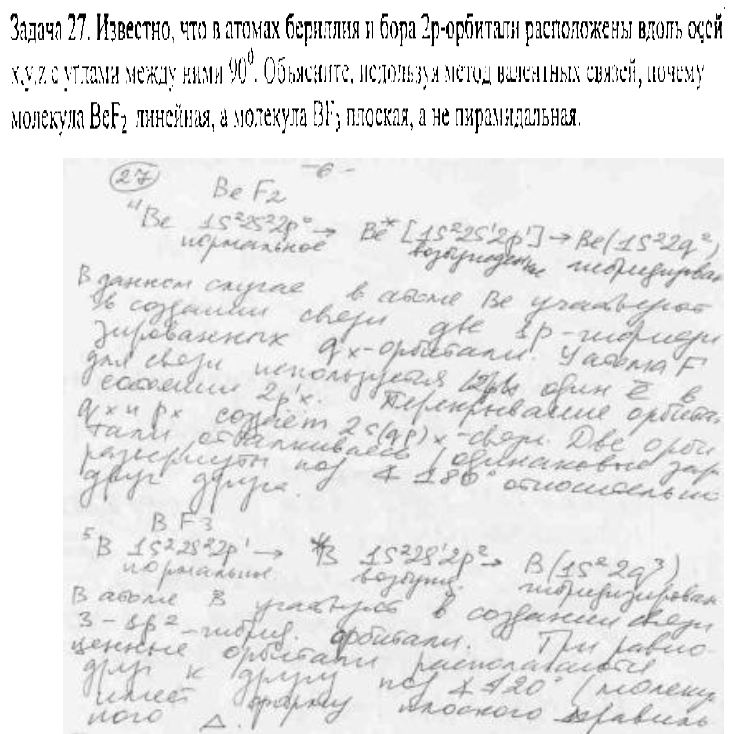 Задача 27. Известно, что в атомах бериллия и бора 2p-орбитали расположены вдоль осей
x,y,z с углами между ними 90⁰. Объясните, используя метод валентных связей, почему
молекула BeF₂ линейная, а молекула BF₃ плоская, а не пирамидальная.
27 -6-
BeF₂
⁴Be 1S²2S²2p⁰ → Be* [1S²2S¹2p¹] → Be(1S²2q²)
нормальное возбужденные гибридирован
В данном случае в атоме Be участвуют
в создании связи две sp-гибриди
зированных qx-орбитали. У атома F
для связи используется один ē в
состоянии 2p¹x. Перекрывание орбита
qx и px создаёт 2 (qp)x-связи. Две орби
тали отталкиваясь (одинаковые зар
развернуты под ∡ 180° относительно
друг друга.
BF₃
⁵B 1S²2S²2p¹ → *B 1S²2S¹2p² → B(1S²2q³)
нормальное возбужд. гибридизирован
В атоме B участвуют в создании связи
3-sp²-гибрид. орбитали. При равно-
ценные орбитали располагаются
друг к другу под ∡ 120° (молеку
имеет форму плоского правиль
ного Δ.